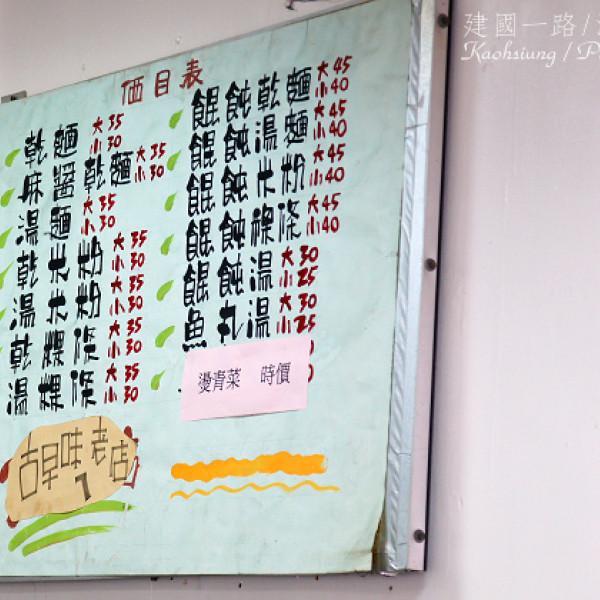 建國一路/
Kaohsiung / P
価目表
乾麵 大35 小30
麻醬乾麵 大35 小30
湯麵 大35 小30
乾米粉 大35 小30
湯米粉 大35 小30
乾粿條 大35 小30
湯粿條 大35 小30
餛飩乾麵 大45 小40
餛飩湯麵 大45 小40
餛飩米粉 大45 小40
餛飩粿條 大45 小40
餛飩湯 大30 小25
魚丸湯 大30 小25
燙青菜 時價
古早味老店